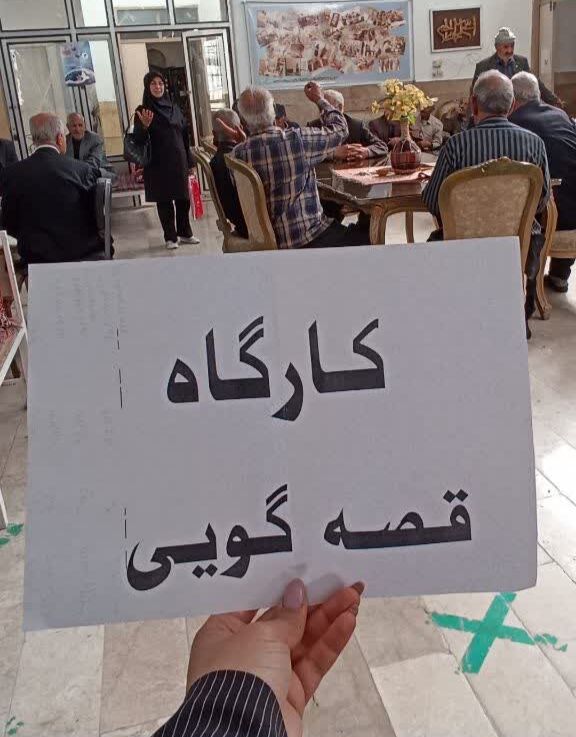 کارگاه
قصه گویی